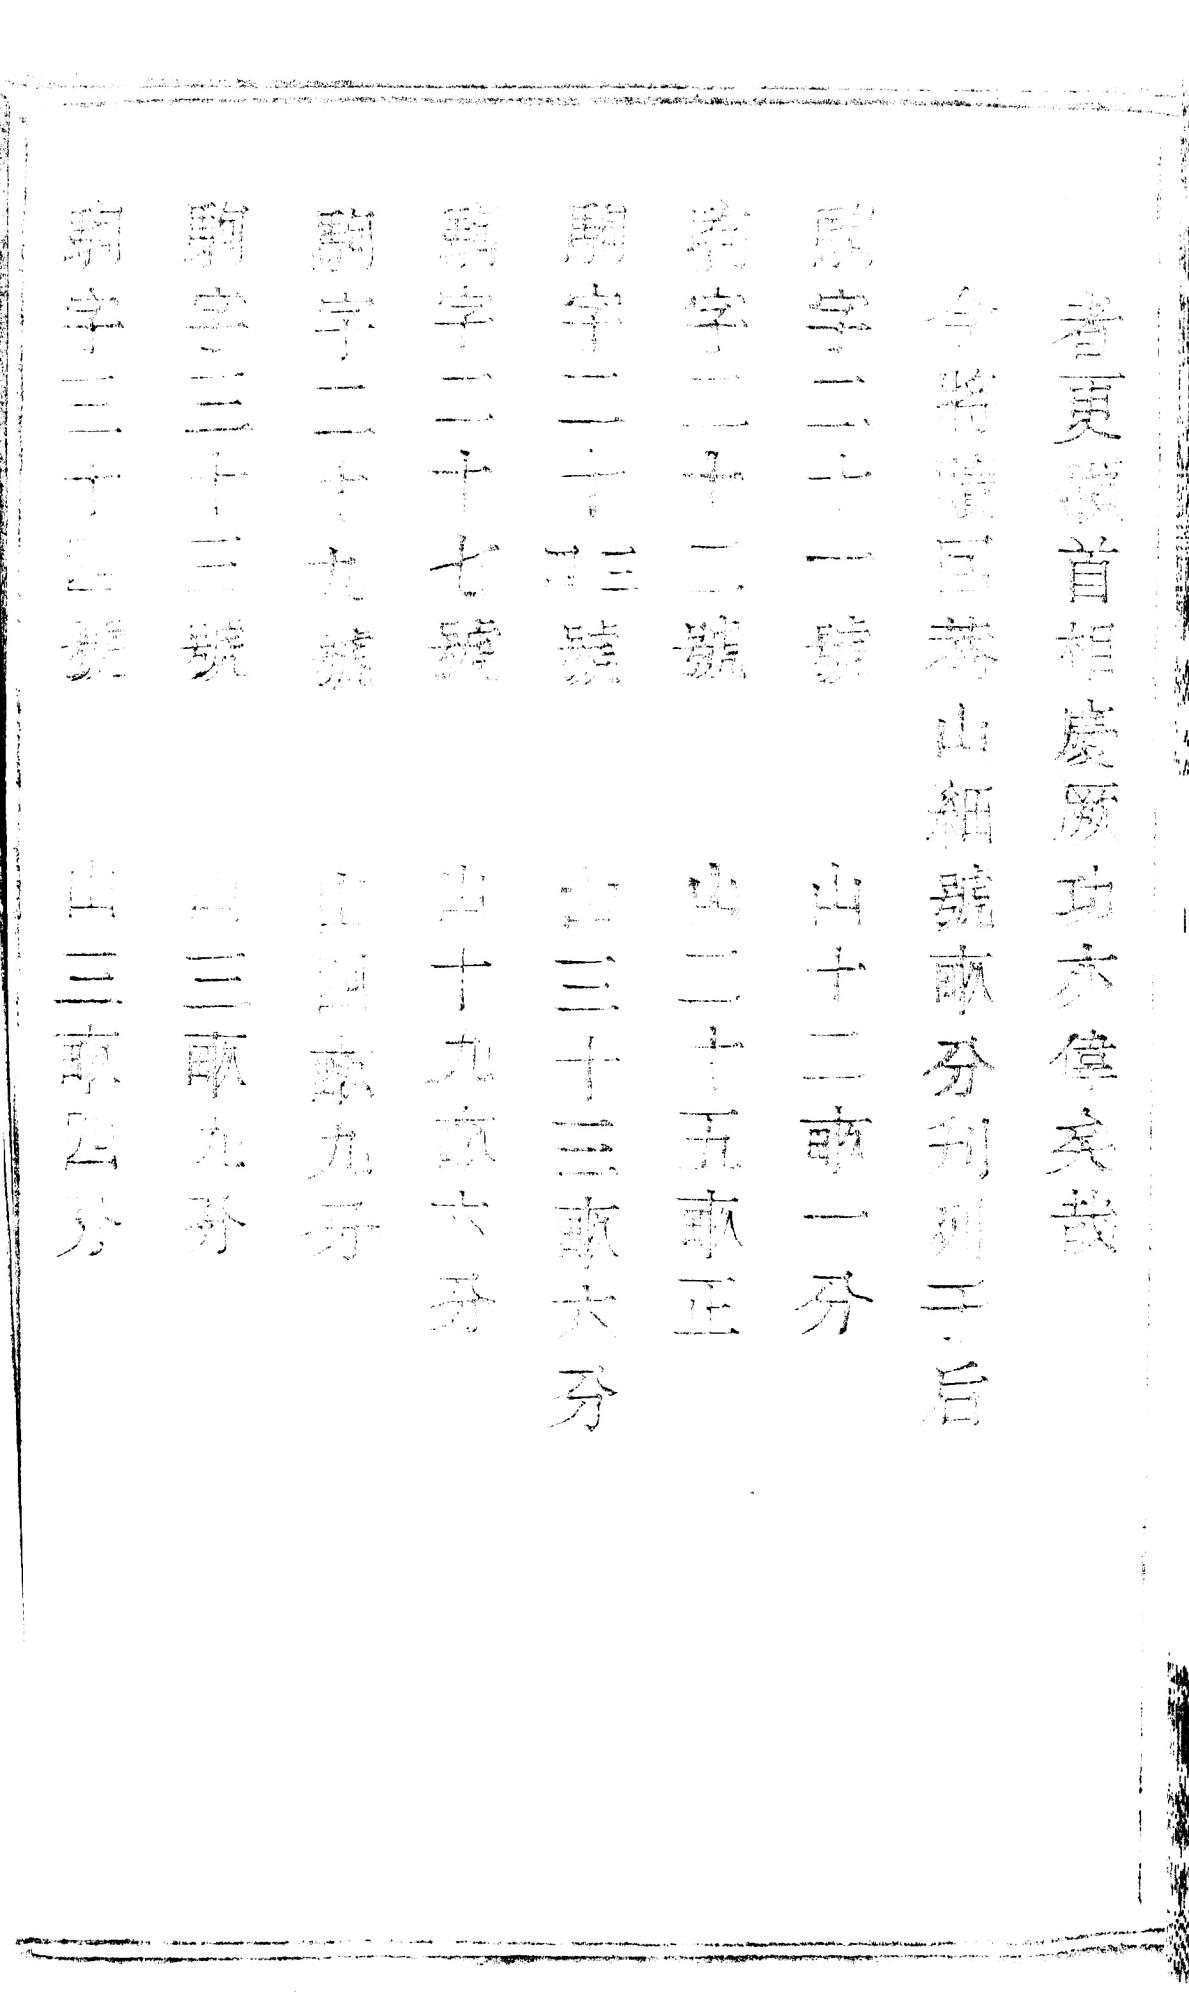 者更首相慶厥功亦偉矣哉
今將山細號畝分刊列于后
駒字二十一號 山十二畝一分
駒字二十二號 山二十五畝正
駒字二十三四號 山三十三畝六分
駒字二十七號 山十九畝六分
駒字二十九號 山四畝九分
駒字三十三號 山三畝九分
駒字三十四號 山三畝四分